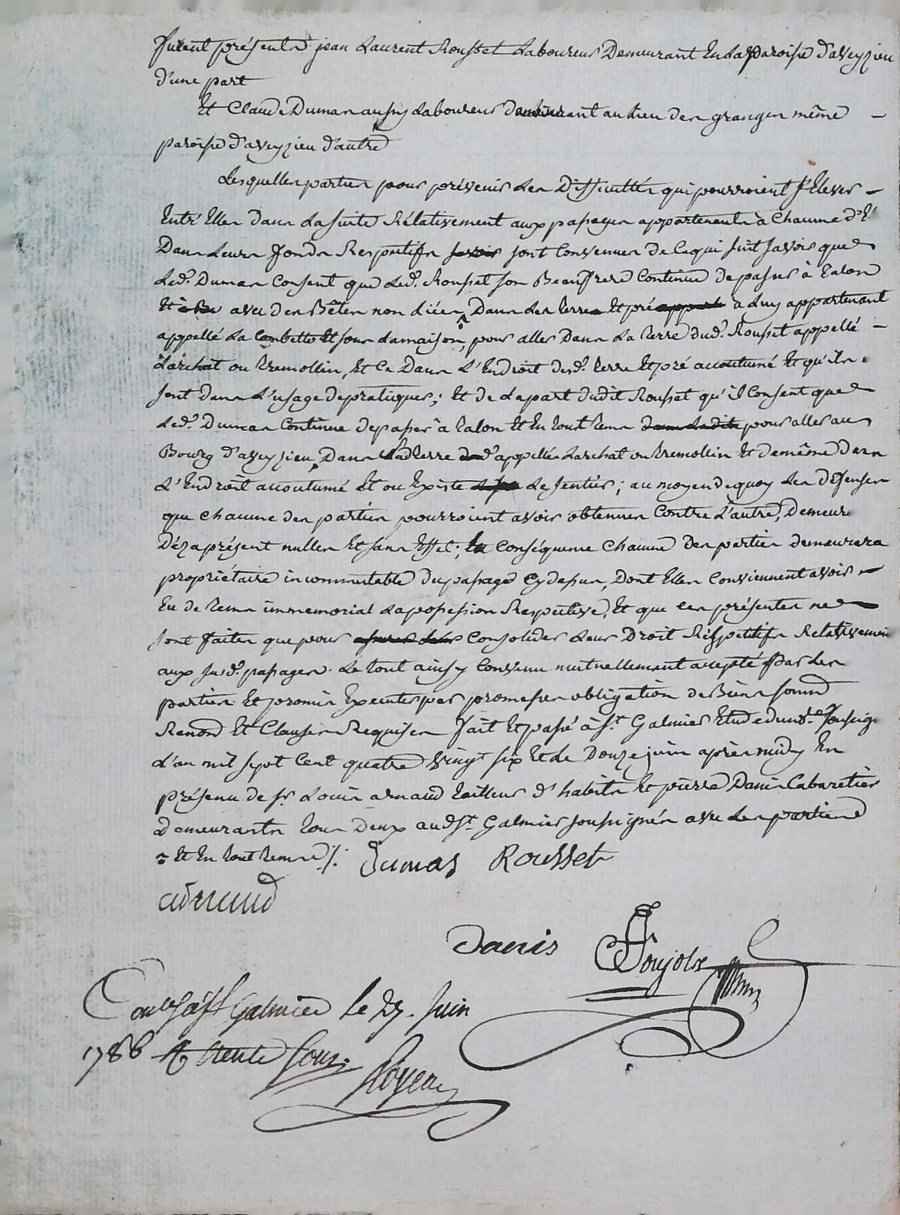 furent présents jean Laurent Rousset Laboureur Demeurant En La paroisse d'aveyzieu
d'une part
Et Claude Dumas aussy Laboureur demeurant au Lieu des granges même
paroisse d'aveyzieu d'autre
Lesquelles parties pour prévenir Les Difficultés qui pourroient s'Elever
Entr'Elles Dans La suite Rélativement aux passages appartenant à Chacune d'E
Dans Leurs fonds Respectifs sont Convenues de Ce qui suit savoir que
Led. Dumas Consent que Led. Rousset son Beaufrere Continue de passer à talon
Et avec des Bêtes non Liées Dans Les terre Et pré à Luy appartenant
appellé La Combette Et sous La maison, pour aller Dans La terre dud. Rousset appellé
Larchat ou tremollin, Et Ce Dans L'Endroit desd. terre Et pré accoutumé Et qu'ils
sont Dans L'usage de pratiquer; Et de La part dudit Rousset qu'il Consent que
Led. Dumas Continue de passer à talon Et En tout tems pour aller au
Bourg d'aveyzieu, Dans La terre appellée Larchat ou tremollin Et de même Dans
L'Endroit accoutumé Et ou Existe Le sentier; au moyen de quoy Les défenses
que Chacune des parties pourroient avoir obtenues Contre L'autre, Demeure
Dèz à présent nulles Et sans Effet; En Conséquence Chacune Des parties demeurera
propriétaire incommutable du passage Cy dessus, Dont Elles Conviennent avoir
Eu de tems immémorial La possession Respective, Et que Ces présentes ne
sont faites que pour Consolider Leur Droit Respectifs Rélativement
aux susd. passages. Le tout ainsy Convenu mutuellement accepté par Les
parties Et promis Exécuter par promesses obligation de Biens soumis
Renonc Et Clauses Requises fait Et passé à St. Galmier Etude du nre. soussigné
L'an mil sept Cent quatre vingt six Et Le Douze juin après midy En
présence de sr Louis arnaud tailleur d'habits Et pierre Danis Cabaretier
Demeurants tous Deux aud. St. Galmier soussignés avec Les parties
Et En tout tems ./.
Dumas Rousset
arnaud
Danis
Poujols
Con.lé à St Galmier Le 25. Juin
1786 R trente Sous